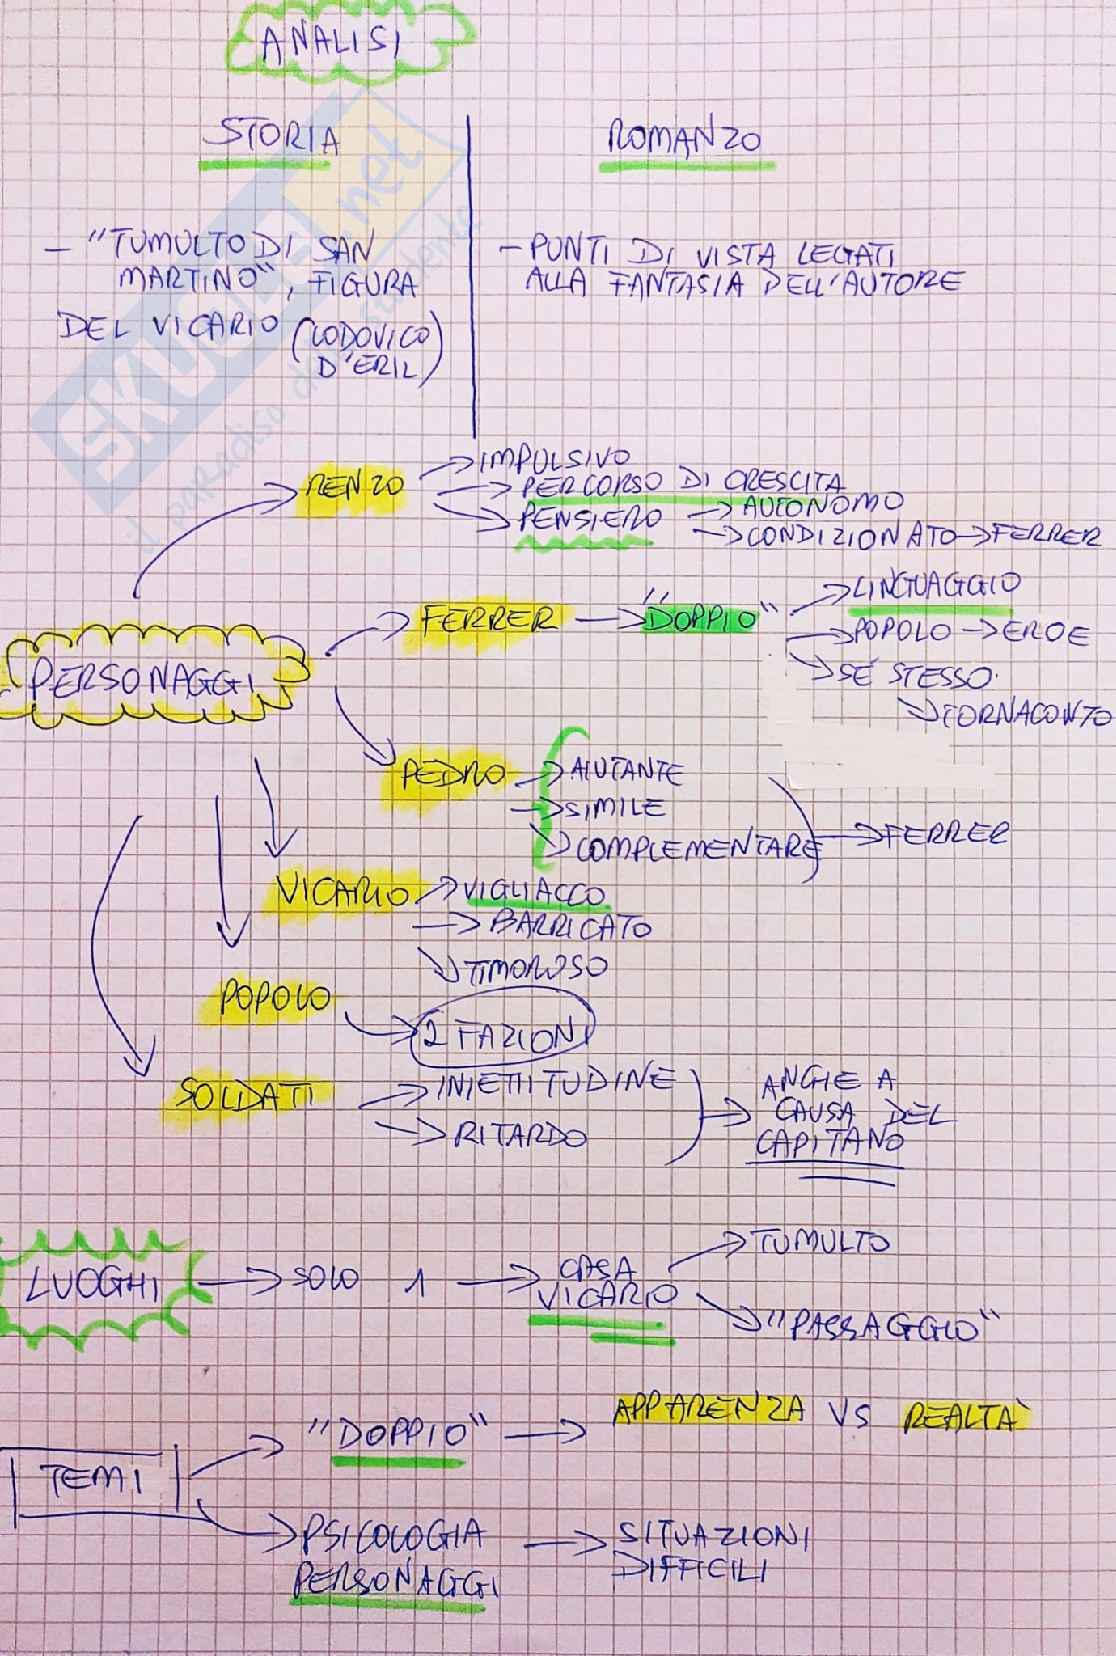 ANALISI
STORIA
ROMANZO
- "TUMULTO DI SAN
MARTINO", FIGURA
DEL VICARIO (LODOVICO
D'ERIL)
- PUNTI DI VISTA LEGATI
ALLA FANTASIA DELL'AUTORE
SKUOLA.net
il paradiso dello studente
PERSONAGGI
RENZO → IMPULSIVO
→ PERCORSO DI CRESCITA
→ PENSIERO → AUTONOMO
→ CONDIZIONATO → FERRER
FERRER → "DOPPIO" → LINGUAGGIO
→ POPOLO → EROE
→ SÉ STESSO
→ TORNACONTO
PEDRO → AIUTANTE
→ SIMILE
→ COMPLEMENTARE → FERRER
VICARIO → VIGLIACCO
→ BARRICATO
→ TIMOROSO
POPOLO → 2 FAZIONI
SOLDATI → INETTITUDINE
→ RITARDO
→ ANCHE A
CAUSA DEL
CAPITANO
LUOGHI → SOLO 1 → CASA
VICARIO
→ TUMULTO
→ "PASSAGGIO"
TEMI
→ "DOPPIO" → APPARENZA VS REALTÀ
→ PSICOLOGIA
PERSONAGGI
→ SITUAZIONI
DIFFICILI